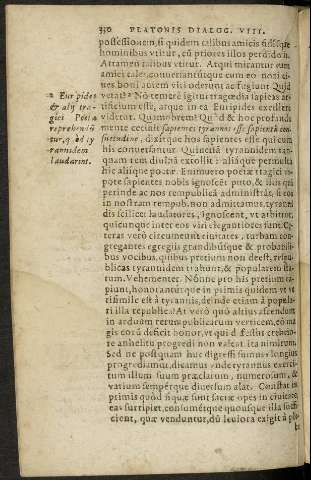 350 PLATONIS DIALGG. VIII.
possessionem, si quidem talibus amicis fidisque
hominibus vtitur, cū priores illos perdidit.
Attamen talibus vtitur. Atqui mirantur eum
amici tales, conuersantúrque cum eo noui ci-
ues: boni autem viri oderunt ac fugiunt. Quid
vetat? Nō temerè igitur tragœdia sapiens ar-
tificium esse, atque in ea Euripides excellere
videtur. Quamobrem? Quòd & hoc profunda
mente cecinit sapientes tyrannos esse sapientū con-
suetudine, dixitque hos sapientes esse qui cum
his conuersantur. Quinetiā tyrannidem tan-
quam rem diuinā extollit: aliáque permulta
hic aliique poëtæ. Enimuero poëtæ tragici vt-
pote sapientes nobis ignoscēt puto, & illis qui
perinde ac nos rempublicā administrāt, si eos
in nostram rempub. non admittamus, tyranni
dis scilicet laudatores, ignoscent, vt arbitror,
quicunque inter eos viri elegantiores sunt. Cę-
teras verò circumeunt ciuitates, turbam con-
gregantes egregiis grandibúsque & probabili-
bus vocibus, quibus pretium non deest, respu-
blicas tyrannidem trahunt, & popularem sta-
tum. Vehementer. Nónne pro his pretium ca-
piunt, honorantúrque in primis quidem vt ve
risimile est à tyrannis, deinde etiam à popula-
ri illa republica? At verò quò altiùs ascendunt
in arduum rerum publicarum verticem, eò ma
gis eorū deficit honor, vt qui
re anhelitu progredi non valeat. Ita nimirum.
Sed ne posquam huc digressi sumus longius
progrediamur, dicamus vnde tyrannus exerci-
tum illum suum præclarum, numerosum, &
varium sempérque diuersum alat. Constat in
primis quòd siquæ sunt sacræ opes in ciuitate,
eas surripiet, consumétque quousque illa suffi-
cient, quæ venduntur, dū leuiora exigit à ple
be
a Euripides
& alij tra-
gici Poëtæ
reprehendū
tur, q̃ ty-
rannidem
laudarint.